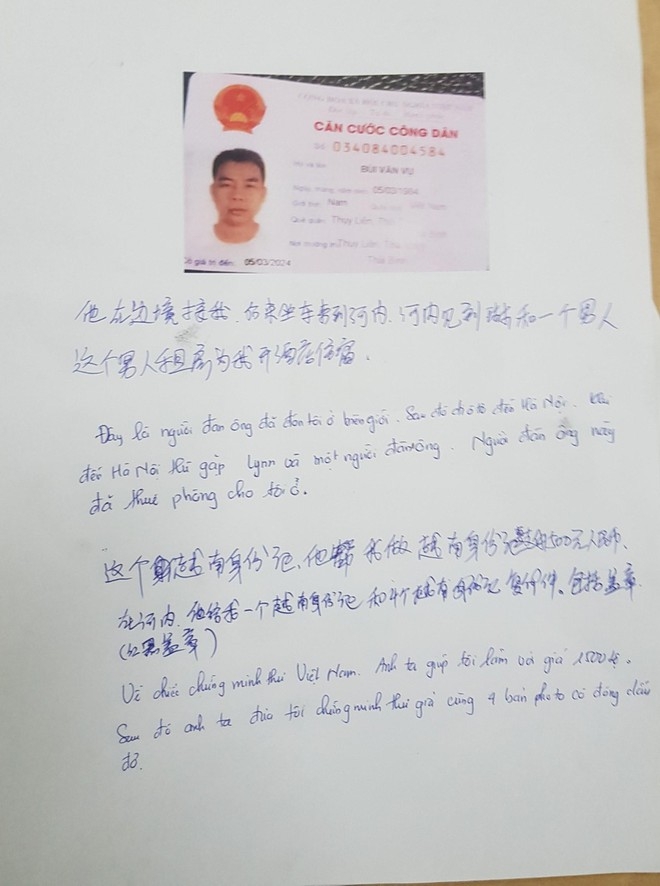 CĂN CƯỚC CÔNG DÂN
Số 034084004584
BÙI VĂN VU
05/03/1984
Nam
Quê quán Thụy Liên
Thụy Liên
Thái Bình
Có giá trị đến: 05/03/2024
他在边境接我. 后来坐车来到河内. 河内见到 和一个男人
这个男人租房为我开酒店住宿.
Đây là người đàn ông đã đón tôi ở biên giới. Sau đó đi ôtô đến Hà Nội. Khi
đến Hà Nội thì gặp Lynn và một người đàn ông. Người đàn ông này
đã thuê phòng cho tôi ở.
这个 越南身份证, 他帮我做越南身份证 1500元人民币.
在河内. 他给我一个越南身份证和4个越南身份证复印件. 包括盖章.
(红 盖章)
Về chiếc chứng minh thư Việt Nam. Anh ta giúp tôi làm với giá 1500 tệ.
Sau đó anh ta đưa tôi chứng minh thư giả cùng 4 bản photo có đóng dấu
đỏ.